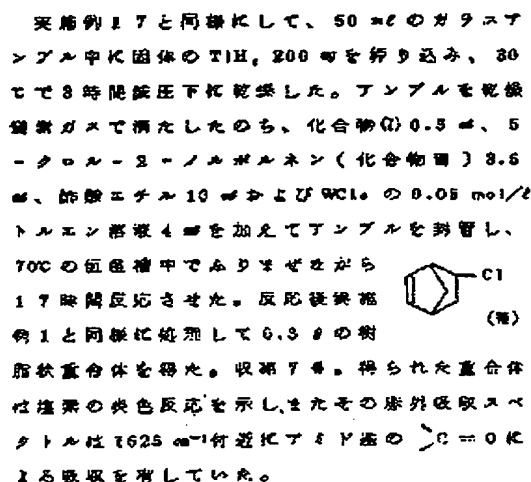 実施例17と同様にして、50 mlのガラスア
ンプル中に固体のTiH 200 mgを 込み、80
℃で3時間減圧下に乾燥した。アンプルを乾燥
窒素ガスで満たしたのち、化合物 0.5 ml、5
-クロル-2-ノルボルネン(化合物 )3.5
ml、酢酸エチル10 mlおよびWCl₆ の0.05 mol/l
トルエン溶液4 mlを加えてアンプルを封管し、
70℃の恒温槽中でふりまぜながら
17時間反応させた。反応後実施
例1と同様に処理して0.3 gの樹
脂状重合体を得た。収率7%。得られた重合体
は塩素の炎色反応を示し、またその赤外吸収スペ
クトルは1625 cm⁻¹付近にアミド基の >C=Oに
よる吸収を有していた。
Cl